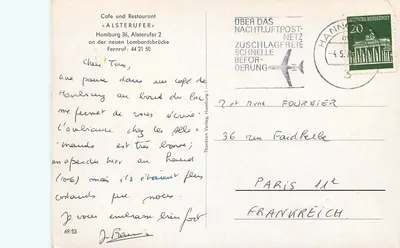 Cafe und Restaurant
»ALSTERUFER«
Hamburg 36, Alsterufer 2
an der neuen Lombardsbrücke
Fernruf: 44 21 50
Chers Tous,
une pause dans un café de
Hambourg au bord du lac
me permet de vous écrire.
L'ambiance chez les Alle-
mands est très bonne;
hier au Hand
(10€) mais ils étaient plus
costauds que nous.
Je vous embrasse bien fort
69/53
J.
ÜBER DAS
NACHTLUFTPOST-
NETZ
ZUSCHLAGFREIE
SCHNELLE
BEFÖR-
DERUNG
HANNO
3
DEUTSCHE BUNDESPOST
20
M et Mme FOURNIER
36 rue Faidherbe
PARIS 11e
FRANKREICH
Hamburg 1